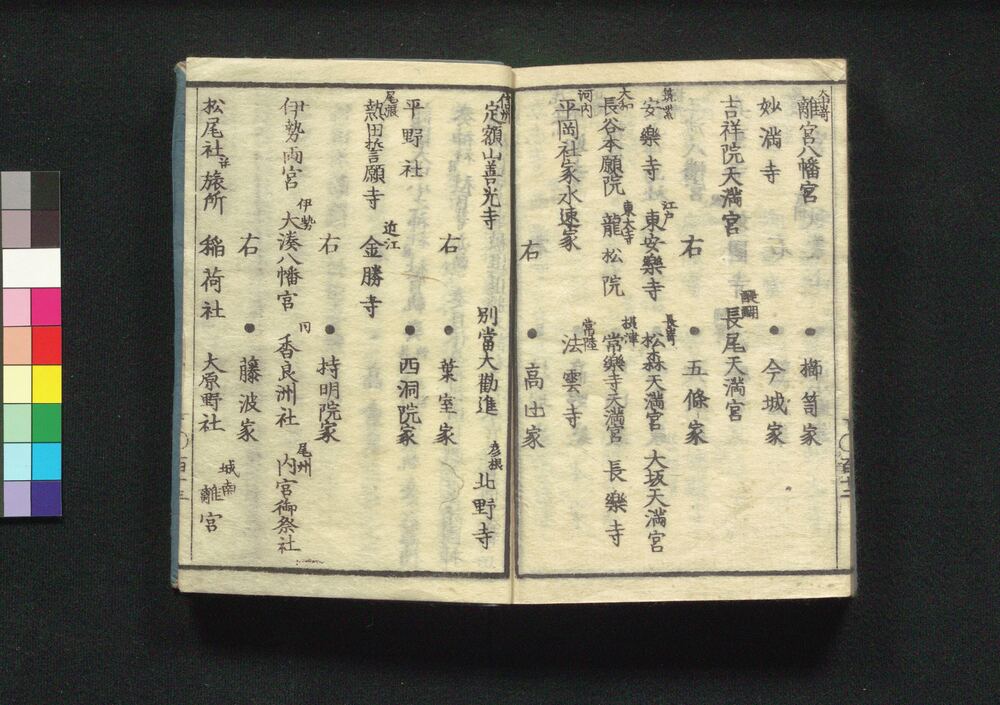 離宮八幡宮 ● 櫛笥家
妙満寺 ● 今城家
吉祥院天満宮 醍醐 長尾天満宮
右 ● 五條家
安樂寺 江戸 東安樂寺 長嵜 松森天満宮 大坂天満宮
大和 長谷本願院 東大寺 龍松院 摂津 常樂寺天満宮 長樂寺
河内 平岡社家水速家 常陸 法雲寺
右 ● 高辻家
信州 定額山善光寺 別當大勸進 彦根 北野寺
右 ● 葉室家
平野社 ● 西洞院家
尾張 熱田誓願寺 近江 金勝寺
右 ● 持明院家
伊勢両宮 伊勢 大湊八幡宮 同 香良洲社 尾州 内宮御祭社
右 ● 藤波家
松尾社 旅所 稲荷社 大原野社 城南 離宮